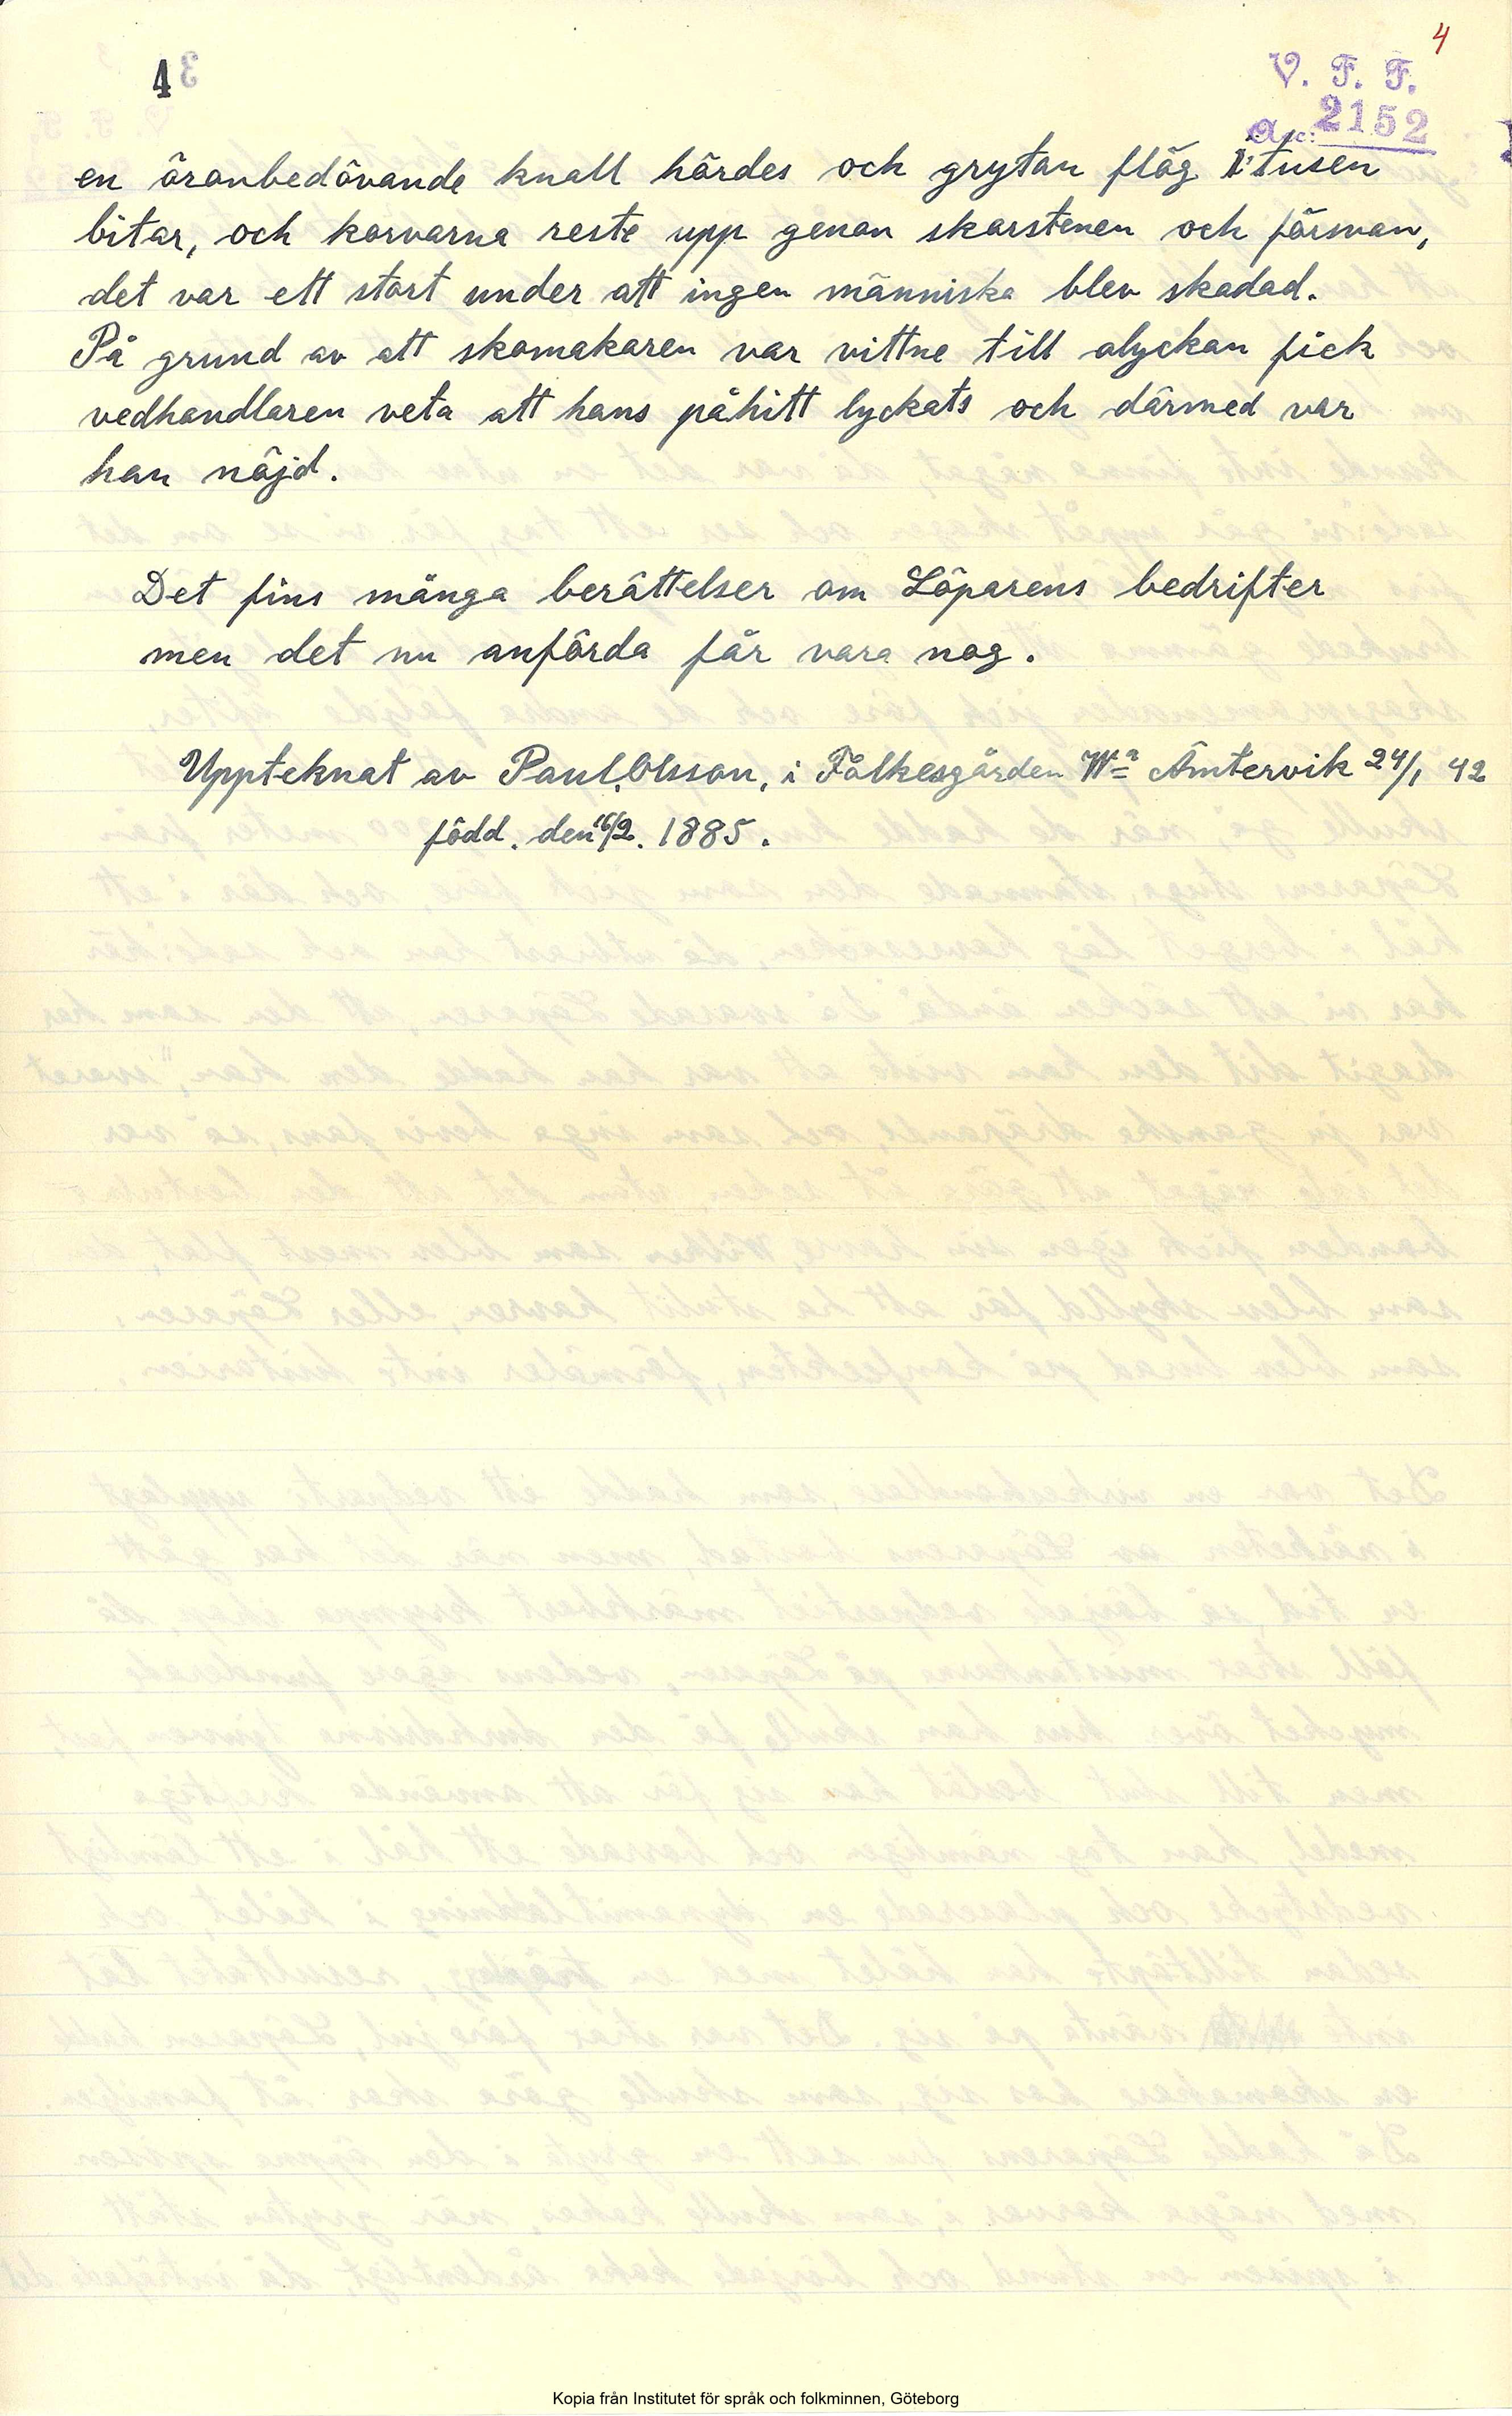 4
4
V. F. F.
Acc: 2152
en öronbedövande knall hördes och grytan flög i tusen
bitar, och korvarna reste upp genon skorstenen och försvan,
det var ett stort under att ingen människa blev skadad.
På grund av att skomakaren var vittne till olyckan fick
vedhandlaren veta att hans påhitt lyckats och därmed var
han nöjd.
Det fins många berättelser om Löparens bedrifter
men det nu anförda får vara nog.
Uppteknat av Paul. Olsson, i Fölkesgården Wa Ämtervik 24/1 42
född. den 16/2. 1885.
Kopia från Institutet för språk och folkminnen, Göteborg